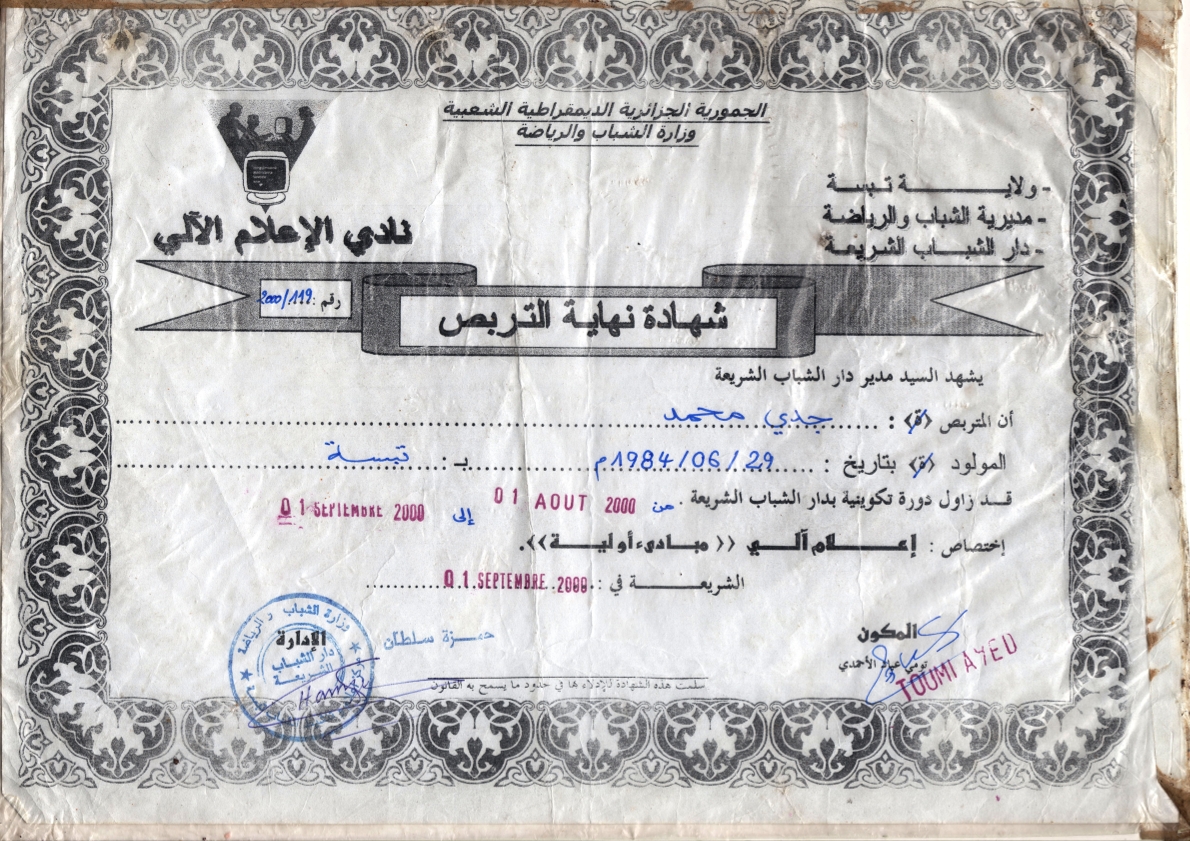 الجمهورية الجزائرية الديمقراطية الشعبية
وزارة الشباب والرياضة
- ولايـــــــة تبسـة
- مديرية الشباب والرياضة
- دار الشباب الشريعة
نادي الإعلام الآلي
رقم : 2000/119
شهادة نهاية التربص
يشهد السيد مدير دار الشباب الشريعة
أن المتربص (ة) : جدي محمد
المولود (ة) بتاريخ : 1984/06/29م بـ : تبسـة
قـد زاول دورة تكوينية بدار الشباب الشريعة . من 01 AOUT 2000 إلى 01 SEPTEMBRE 2000
إختصاص : إعـــلام آلــي (( مبـادىء أوليـة )).
الشريعـــــة في : 01 SEPTEMBRE 2000
المكون
تومي عياد الأحمدي
TOUMI AYED
الإدارة
حمـزة سلطان
وزارة الشباب و الرياضة
دار الشباب
الشريعـة
سلمت هذه الشهادة للإدلاء بها في حدود ما يسمح به القانون